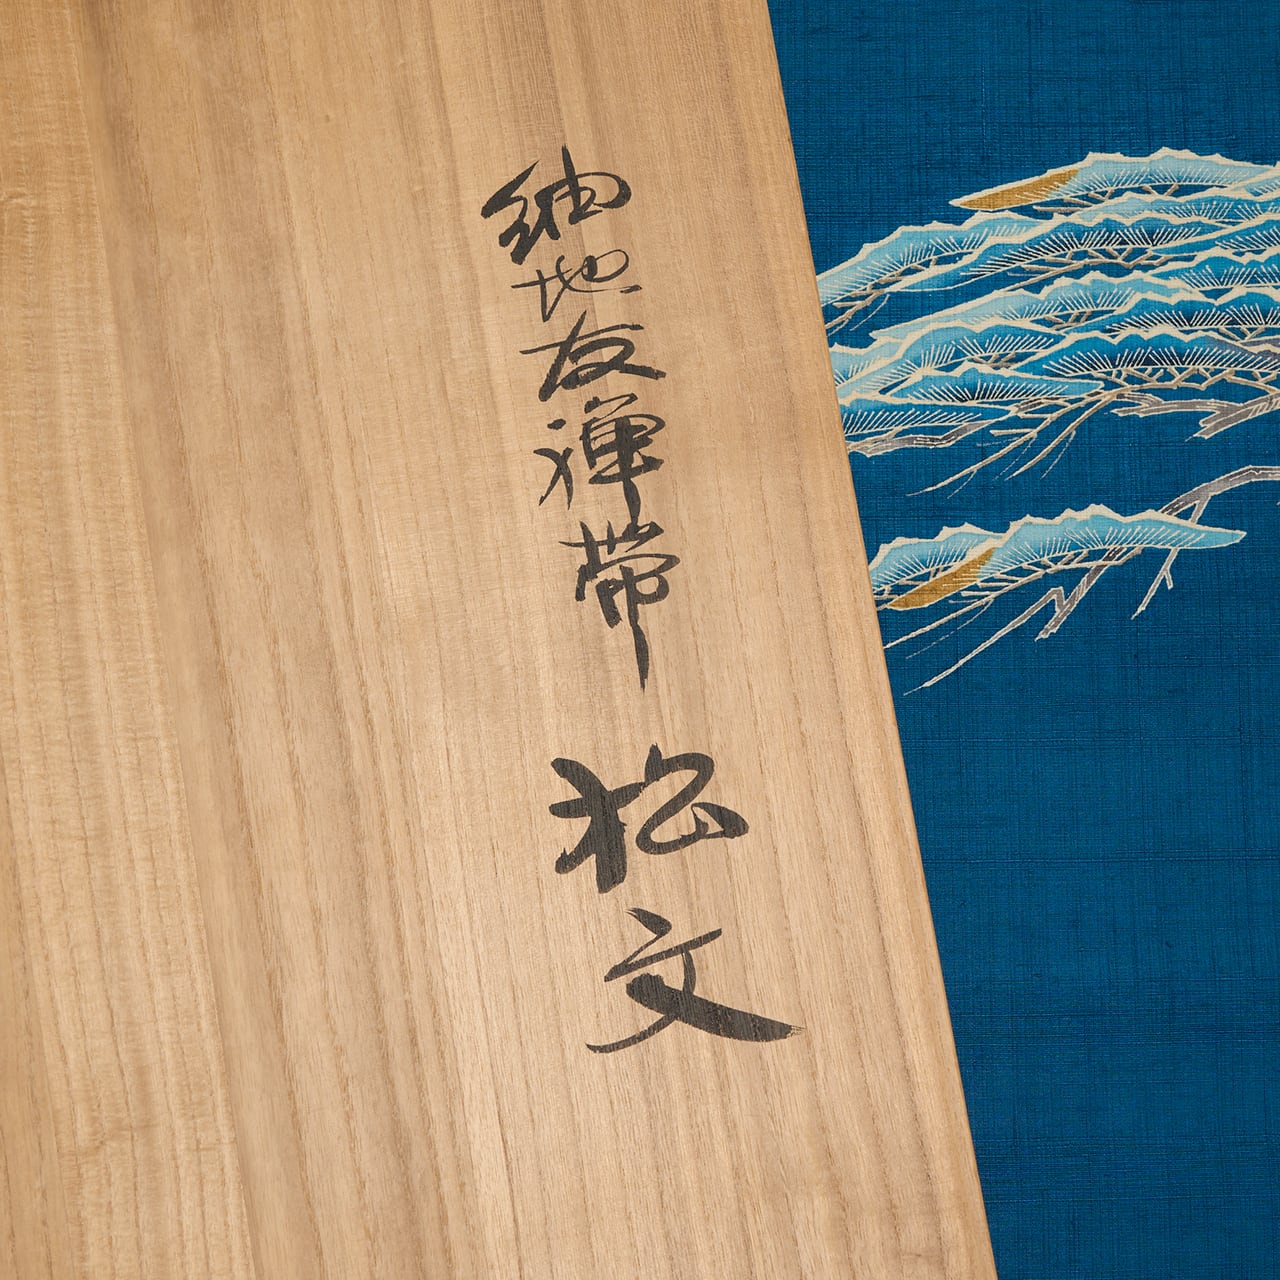 紬地友禅帯 松文